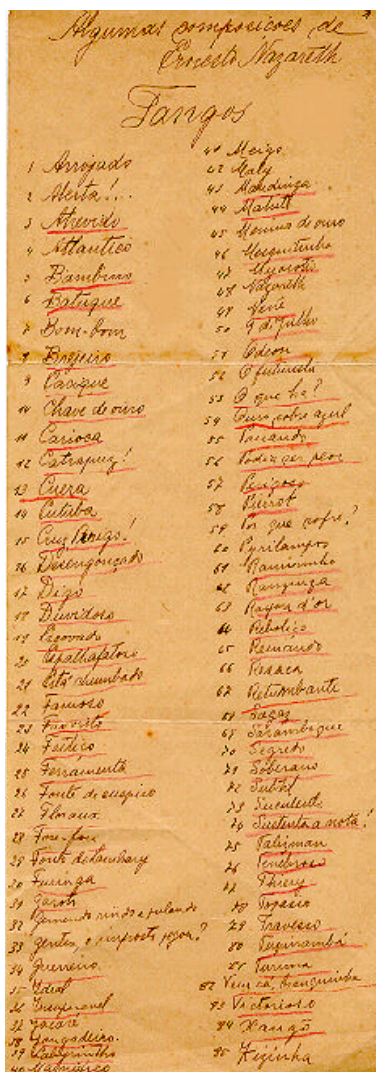 Algumas composicoes de
Ernesto Nazareth
Tangos
1 Arrojado
2 Alerta!..
3 Atrevido
4 Atlantico
5 Bambino
6 Batuque
7 Bom-bom
8 Brejeiro
9 Cacique
10 Chave de ouro
11 Carioca
12 Catrapuz!
13 Cuera
14 Cutuba
15 Cruz Perigo!
16 Desengonçado
17 Digo
18 Duvidoso
19 Escovado
20 Espalhafatoso
21 Está chumbado
22 Famoso
23 Favorito
24 Feitiço
25 Ferramenta
26 Fonte de suspiro
27 Floraux
28 Fon-fon
29 Fonte do Lambary
30 Furinga
31 Garoto
32 Gemendo rindo e pulando
33 Gentes, o imposto pegou?
34 Guerreiro
35 Ideal
36 Insuperavel
37 Jacaré
38 Jangadeiro
39 Labyrintho
40 Magnifico
41 Meigo
42 Maly
43 Mandinga
44 Matutt
45 Menino de ouro
46 Mesquitinha
47 Myosotis
48 Nazareth
49 Nenê
50 9 de Julho
51 Odeon
52 O futurista
53 O que ha?
54 Ouro sobre azul
55 Pairando
56 Podia ser peor
57 Perigoso
58 Pierrot
59 Por que sofre?
60 Pyrilampo
61 Ramirinho
62 Ranzinza
63 Rayon d'or
64 Reboliço
65 Remando
66 Resaca
67 Retumbante
68 Sagaz
69 Sarambeque
70 Segredo
71 Soberano
72 Subtil
73 Suculento
74 Sustenta a nota!
75 Talisman
76 Tenebroso
77 Thiery
78 Topasio
79 Travesso
80 Tupynambá
81 Turuna
82 Vem cá, branquinha
83 Victorioso
84 Xangô
85 Zizinha